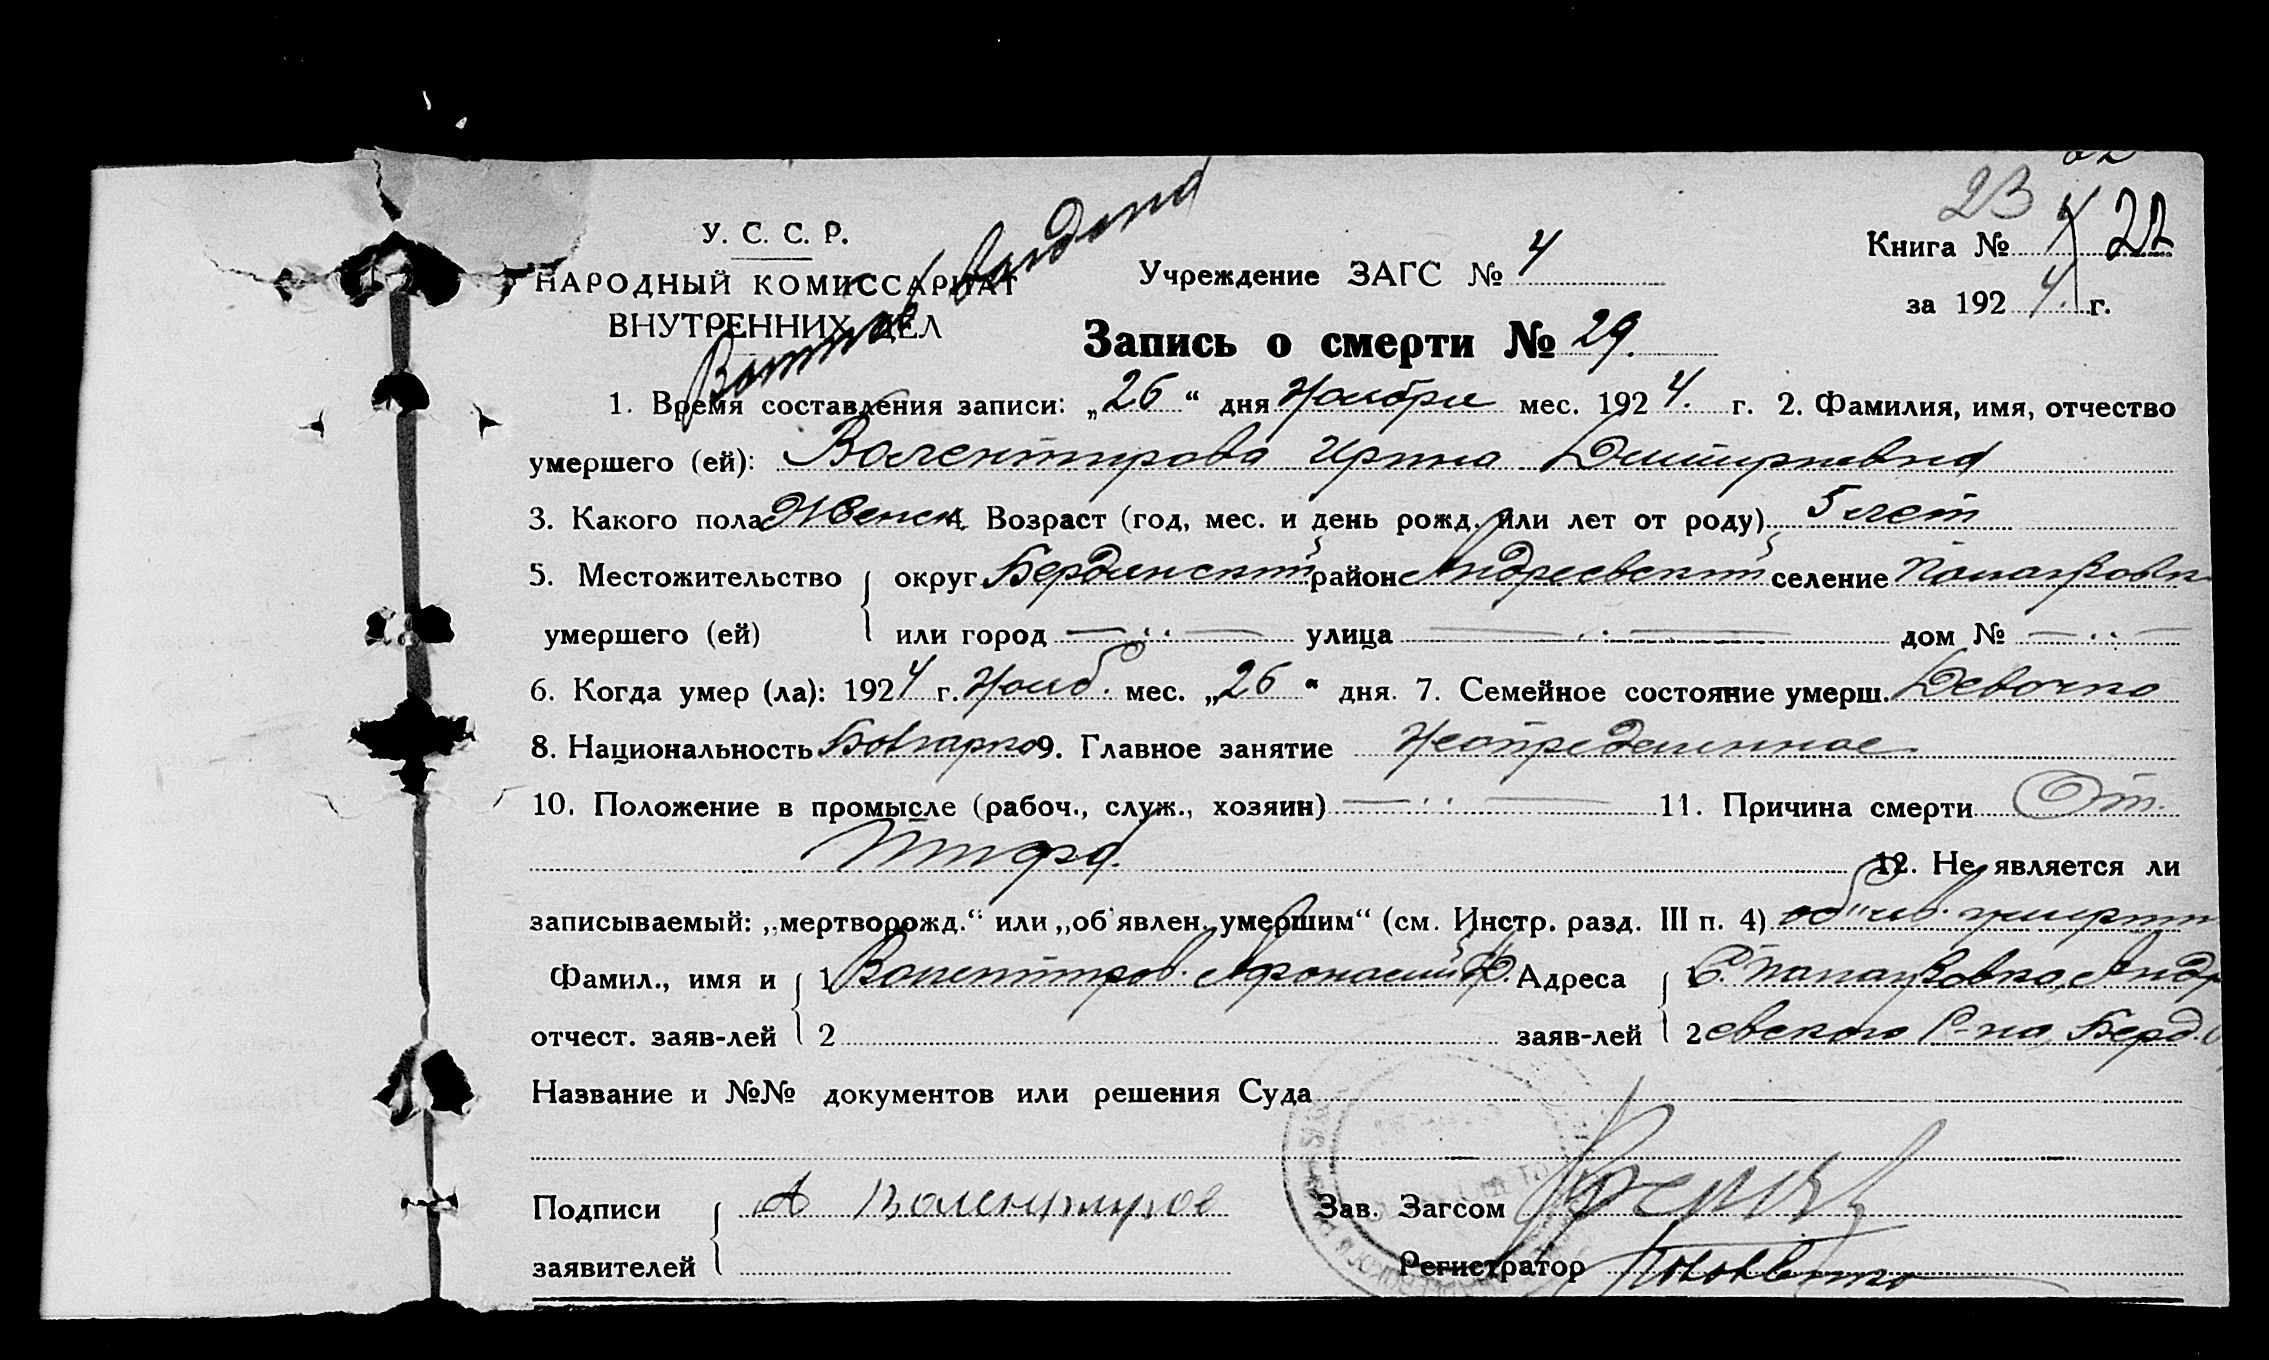 23 22
У. С. С. Р.
НАРОДНЫЙ КОМИССАРИАТ
ВНУТРЕННИХ ДЕЛ
Выписка выдана
Учреждение ЗАГС № 4
Книга № 22
за 1924 г.
Запись о смерти № 29.
1. Время составления записи: „26“ дня Ноября мес. 1924. г. 2. Фамилия, имя, отчество
умершего (ей): Валентирова Ирина Дмитриевна
3. Какого пола Женск. 4. Возраст (год, мес. и день рожд. или лет от роду) 5 лет
5. Местожительство округ Бердянский район Андреевский селение
умершего (ей) или город — ·· — улица — ·· — дом № — ·· —
6. Когда умер (ла): 1924 г. Нояб. мес. „26“ дня. 7. Семейное состояние умерш. Девочка
8. Национальность Болгарка 9. Главное занятие Неопределенное
10. Положение в промысле (рабоч., служ., хозяин) — ·· — 11. Причина смерти От
тифа. 12. Не является ли
записываемый: „мертворожд.“ или „об'явлен. умершим“ (см. Инстр. разд. III п. 4) об"яв. умерш
Фамил., имя и 1 Валентиров Афонасий Ф. Адреса 1 С.
отчест. заяв-лей 2 заяв-лей 2 евского Р-на, Берд.
Название и №№ документов или решения Суда
Подписи А Валентиров Зав. Загсом
заявителей Регистратор